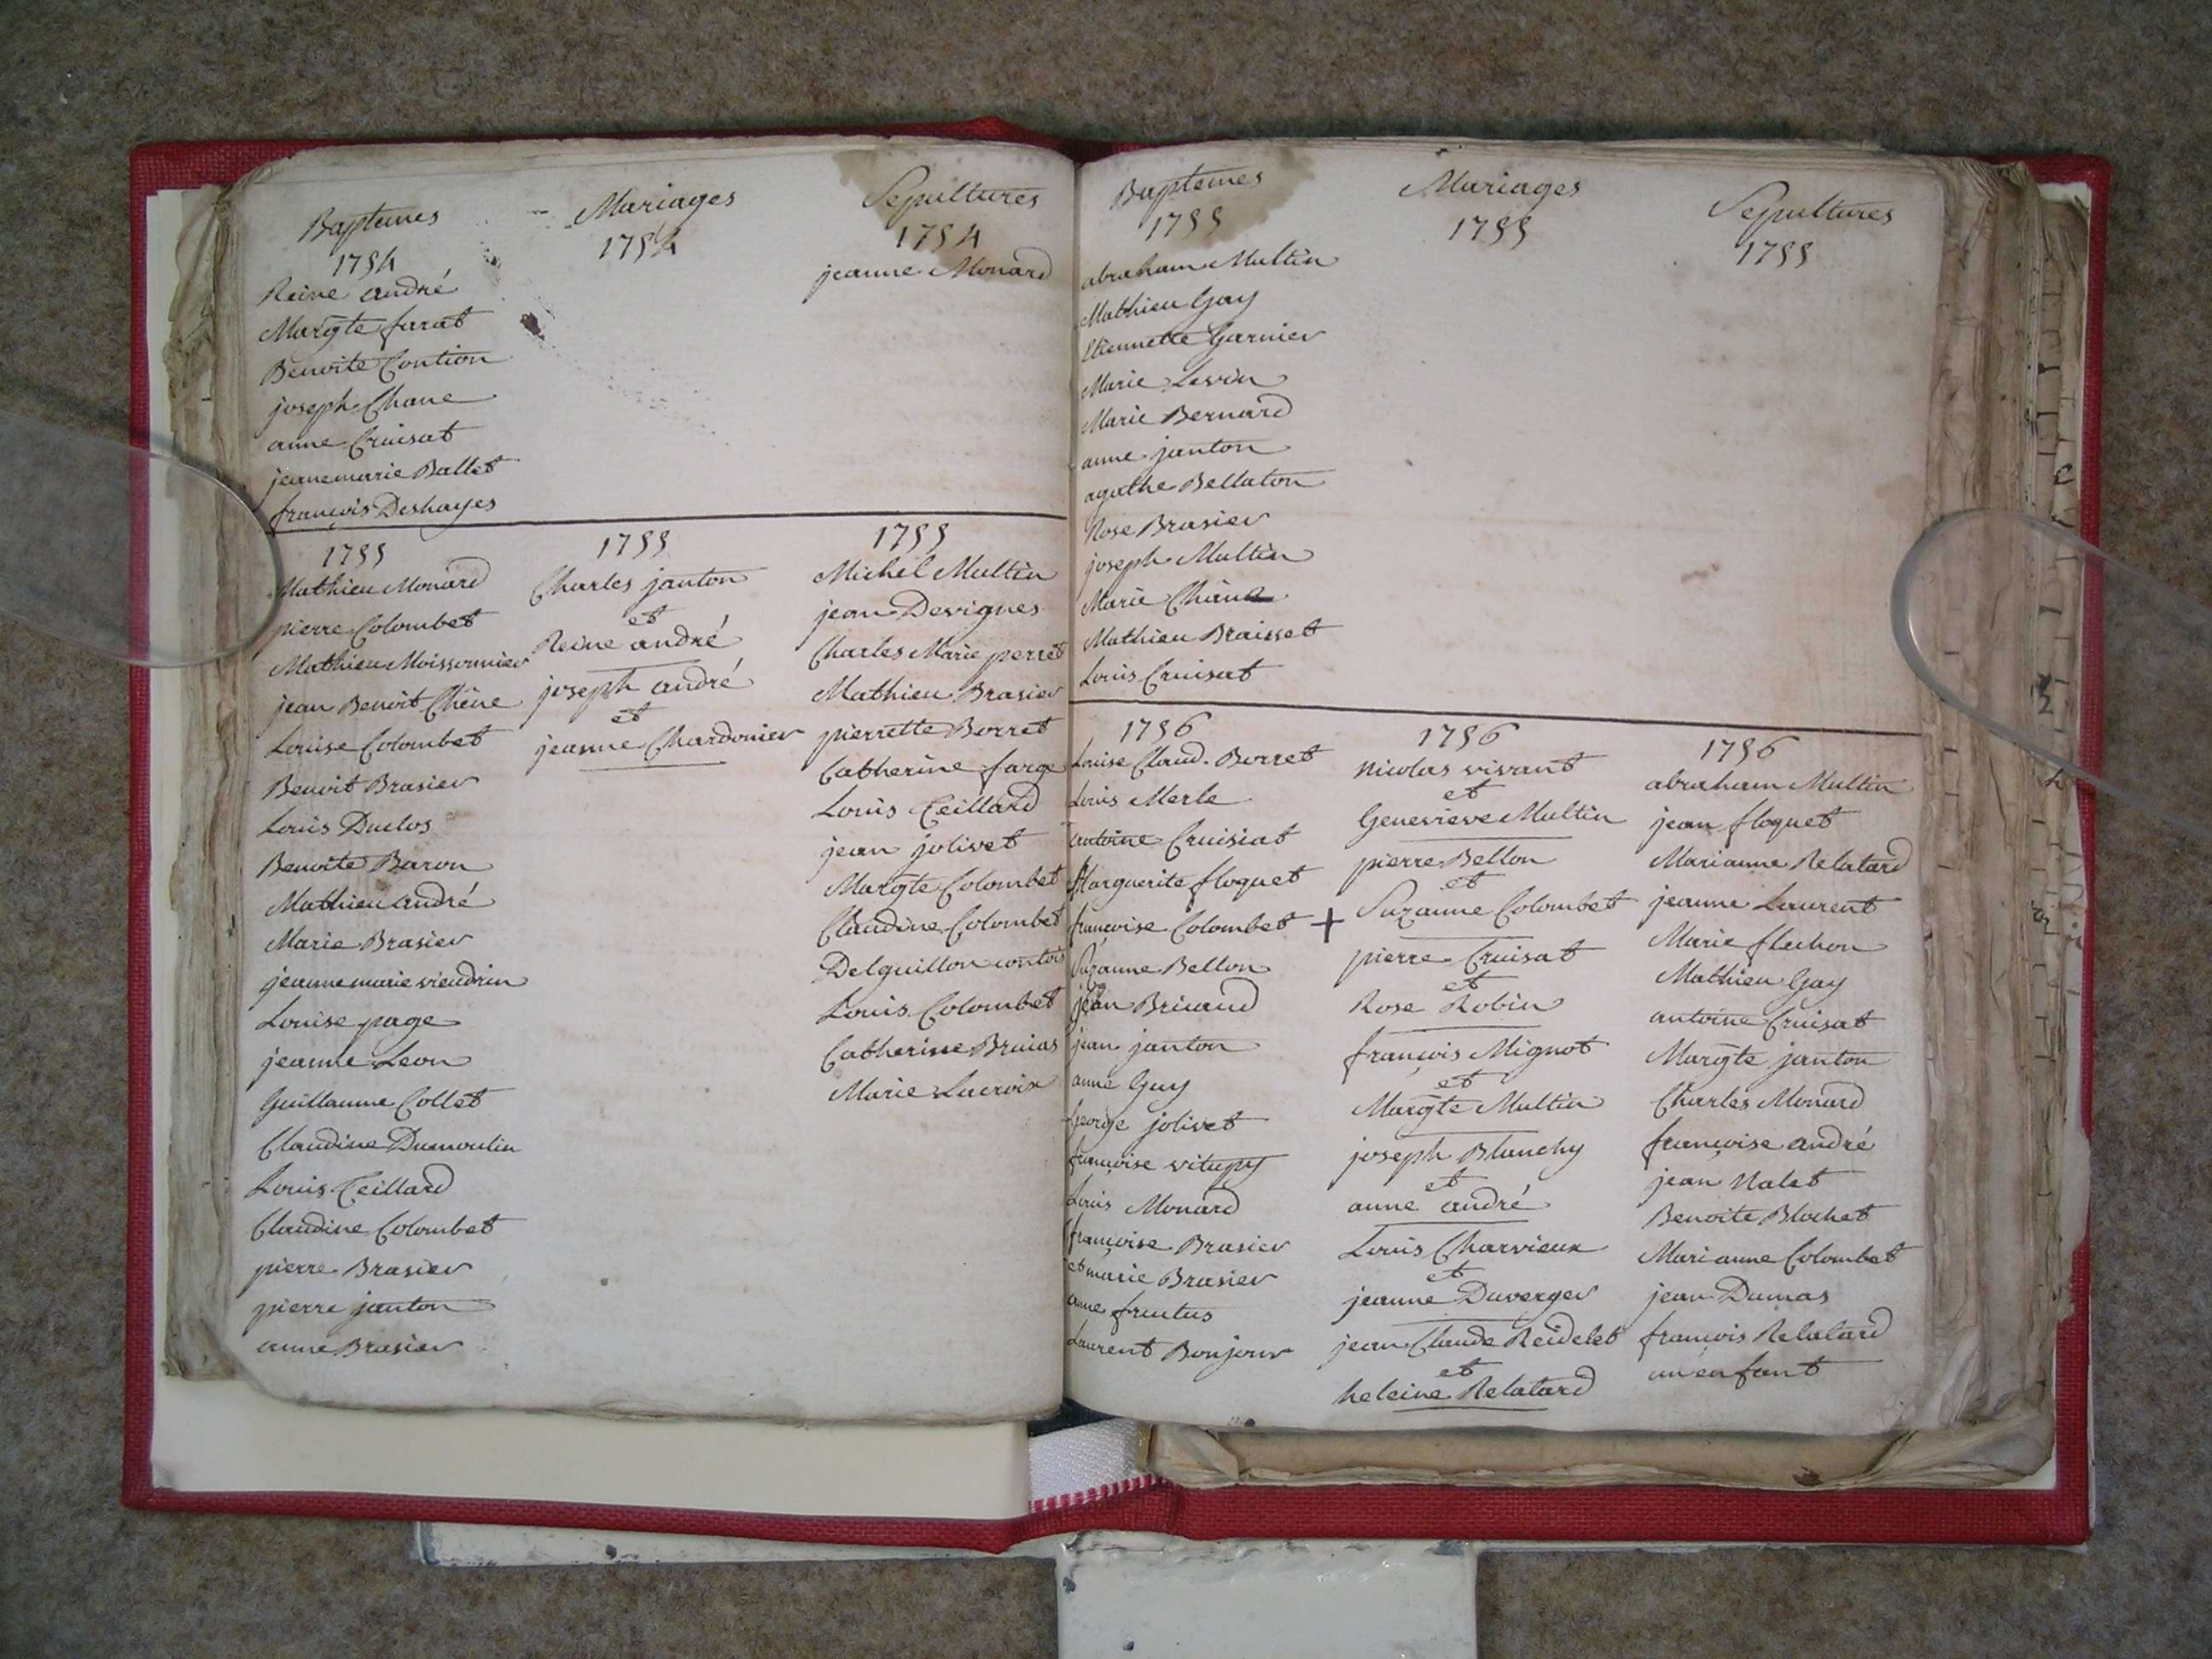 Baptemes
1754
Reine andré
Margte farat
Benoite Contion
joseph Chane
anne Cruisat
jeanemarie Ballet
françois Deshayes
Mariages
1754
Sepultures
1754
jeanne Monard
1755
Mathieu Monard
pierre Colombet
Mathieu Moissonnier
jean Benoit Chêne
Louise Colombet
Benoit Brasier
Louis Duclos
Benoite Baron
Mathieu andré
Marie Brasier
jeanne marie vieudrin
Louise page
jeanne Leon
Guillaume Collet
Claudine Dumoulin
Louis Teillard
Claudine Colombet
pierre Brasier
pierre janton
anne Brasier
1755
Charles janton
et
Reine andré
joseph andré
et
jeanne Chardonier
1755
Michel Multin
jean Devignes
Charles Marie perret
Mathieu Brasier
pierrette Borret
Catherine farge
Louis Teillard
jean jolivet
Margte Colombet
Claudine Colombet
Delguillon contois
Louis Colombet
Catherine Bruias
Marie Lacroix
Baptemes
1755
abraham Multin
Mathieu Gay
Etiennette Garnier
Marie Levin
Marie Bernard
anne janton
agathe Bellaton
Rose Brasier
joseph Multin
Marie
Mathieu Braisset
Louis Cruisat
Mariages
1755
Sepultures
1755
1756
Louise Claud. Borret
Louis Merle
antoine Cruisiat
Marguerite floquet
françoise Colombet +
Suzanne Bellon
jean Briand
jean janton
anne Gay
George jolivet
françoise vitupy
Louis Monard
françoise Brasier
et marie Brasier
anne frutus
Laurent Bonjour
1756
Nicolas vivant
et
Genevieve Multin
pierre Bellon
et
Suzanne Colombet
pierre Cruisat
et
Rose Robin
françois Mignot
et
Margte Multin
joseph Blanchy
et
anne andré
Louis Charvieux
et
jeanne Duverger
jean Claude Reidelet
et
heleine Relatard
1756
abraham Multin
jean floquet
Marianne Relatard
jeanne Laurent
Marie fluchon
Mathieu Gay
antoine Cruisat
Margte janton
Charles Monard
françoise andré
jean Nalet
Benoite Blochet
Marianne Colombet
jean Dumas
françois Relatard
un enfant